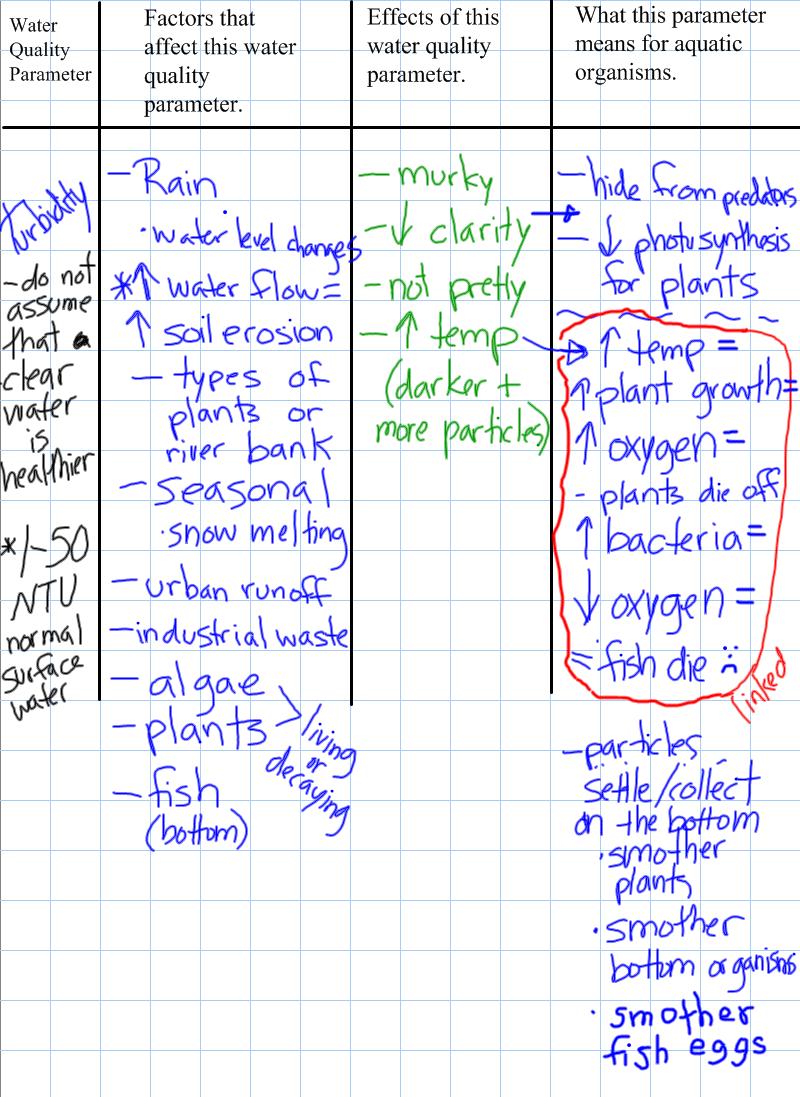 Water
Quality
Parameter
Factors that
affect this water
quality
parameter.
Effects of this
water quality
parameter.
What this parameter
means for aquatic
organisms.
turbidity
- do not
assume
that a
clear
water
is
healthier
*/-50
NTU
normal
surface
water
- Rain
· water level changes
*↑ water flow =
↑ soil erosion
- types of
plants or
river bank
- seasonal
· snow melting
- urban runoff
- industrial waste
- algae
- plants
> living
or
decaying
- fish
(bottom)
- murky
- ↓ clarity →
- not pretty
- ↑ temp →
(darker +
more particles)
- hide from predators
- ↓ photosynthesis
for plants
~ ~ ~ ~ ~
↑ temp =
↑ plant growth =
↑ oxygen =
- plants die off
↑ bacteria =
↓ oxygen =
= fish die :(
linked
- particles
settle/collect
on the bottom
· smother
plants
· smother
bottom organisms
· smother
fish eggs